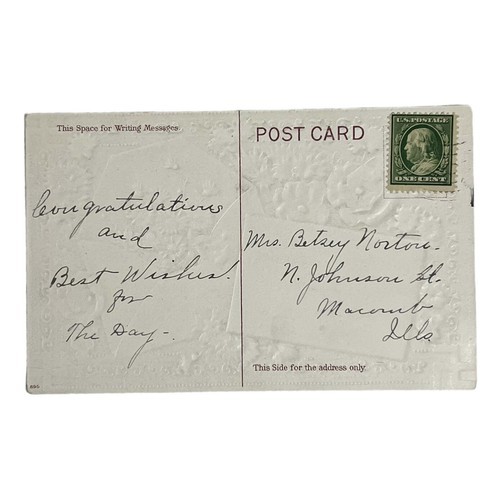 This Space for Writing Messages.
POST CARD
U.S. POSTAGE
ONE CENT
Congratulations
and
Best Wishes!
for
The Day-
Mrs. Betsey Norton-
N. Johnson St.
Macomb
Ills
This Side for the address only.